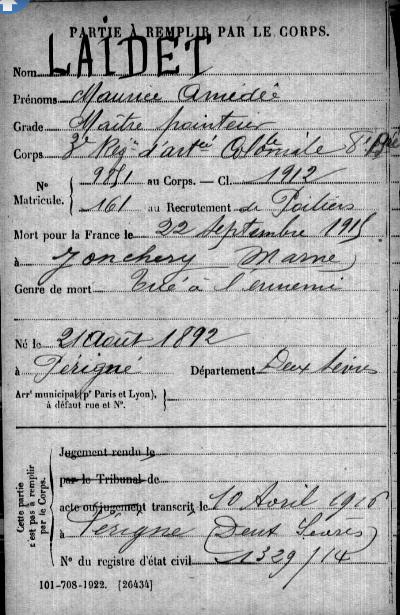 PARTIE À REMPLIR PAR LE CORPS.
Nom LAIDET
Prénoms Maurice Amédée
Grade Maître pointeur
Corps 3e Rgt d'artie Coloniale 8e
N° Matricule. { 9851 au Corps. — Cl. 1912
161 au Recrutement de Poitiers
Mort pour la France le 22 Septembre 1915
à Jonchery Marne
Genre de mort Tué à l'ennemi
Né le 21 août 1892
à Périgné Département Deux Sèvres
Arrt municipal (pr Paris et Lyon), à défaut rue et N°.
Cette partie n'est pas à remplir par le Corps.
Jugement rendu le
par le Tribunal de
acte ou jugement transcrit le 10 Avril 1916
à Périgné (Deux Sèvres)
N° du registre d'état civil 1329/14
101-708-1922. [26434]